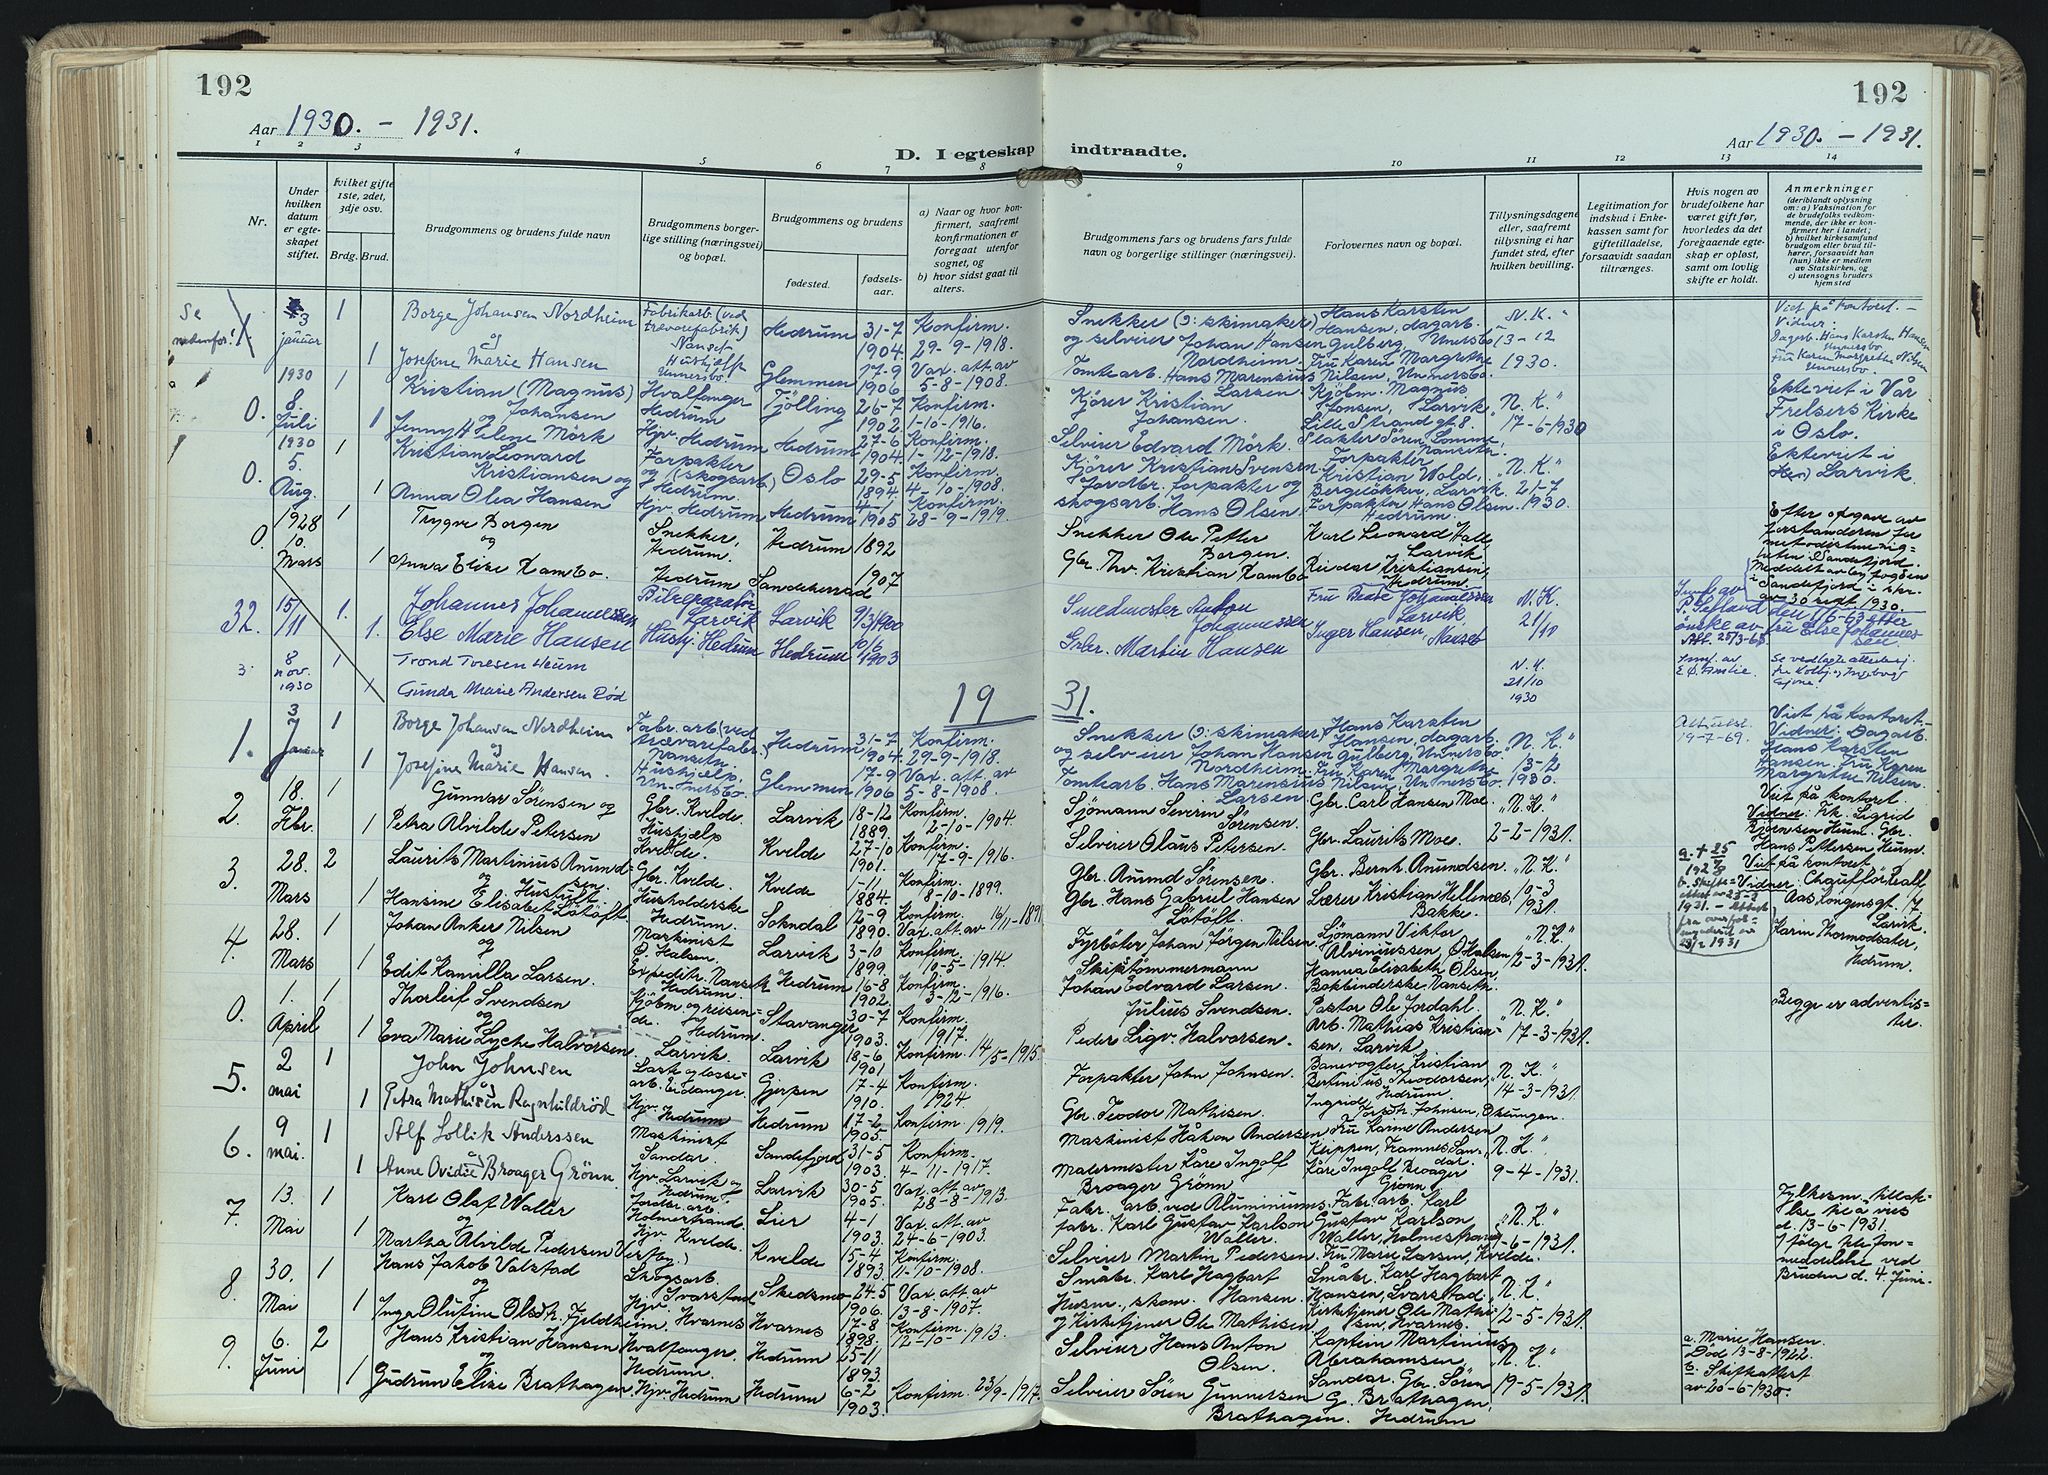 192
192
Aar 1930. - 1931.
Aar 1930. - 1931.
D. I egteskap indtraadte.
1 2 3 4 5 6 7 8 9 10 11 12 13 14
Nr.
Under hvilken datum er egteskapet stiftet.
hvilket gifte 1ste, 2det, 3dje osv.
Brdg. Brud.
Brudgommens og brudens fulde navn
Brudgommens borgerlige stilling (næringsvei) og bopæl.
Brudgommens og brudens
fødested.
fødselsaar.
a) Naar og hvor konfirmert, saafremt konfirmationen er foregaat utenfor sognet, og
b) hvor sidst gaat til alters.
Brudgommens fars og brudens fars fulde navn og borgerlige stillinger (næringsvei).
Forlovernes navn og bopæl.
Tillysningsdagene eller, saafremt tillysning ei har fundet sted, efter hvilken bevilling.
Legitimation for indskud i Enkekassen samt for giftetilladelse, forsaavidt saadan tiltrænges.
Hvis nogen av brudefolkene har været gift før, hvorledes da det foregaaende egteskap er opløst, samt om lovlig skifte er holdt.
Anmerkninger
(deriblandt oplysning om: a) Vaksination for de brudefolks vedkommende, der ikke er konfirmert her i landet; b) hvilket kirkesamfund brudgom eller brud tilhører, forsaavidt han (hun) ikke er medlem av Statskirken, og c) utensogns bruders hjemsted
Se nedenfor! 1 3 januar 1
Borge Johansen Nordheim
og
Fabrikarb. (ved trævarefabrik) Nanset
Hedrum 31-7 1904. Konfirm. 29-9-1918.
Snekker (ɔ: skimaker) og selveier Johan Hansen Nordheim.
Hans Karsten Hansen, dagarb. Gulberg, Unnersbo
N. K. 13-12 1930.
Viet på kontoret. - Vidner: Dagarb. Hans Karsten Hansen Unnersbo. Fru Karen Margrethe Nilsen Unnersbo.
1 Josefine Marie Hansen
Hushjelp Unnersbo.
Glemmen 17-9 1906 Vax. att. av 5-8-1908.
Tomtearb. Hans Marensius Larsen
Fru Karen Margrethe Nilsen, Unnersbo.
1930 0. 8 Juli 1
Kristian (Magnus) Johansen
og
Hvalfanger Hedrum
Tjölling 26-7 1902 Konfirm. 1-10-1916.
Kjörer Kristian Johansen.
Kjöbm. Magnus Jonsen, Larvik, Lille Strandgt. 8.
"N. K." 17-6-1930
Ekteviet i Vår Frelsers Kirke i Oslo.
1 Jenny Helene Mörk
Hjv. Hedrum Hedrum 27-6 1904. Konfirm. 1-12-1918.
Selveier Edvard Mörk.
1930 0. 5. Aug. 1
Kristian Leonard Kristiansen og
Forpakter og (skogsarb.) Hedrum.
Oslo 29-5 1894. Konfirm. 4-10-1908.
Kjörer Kristian Svensen.
Forpakter Kristian Wold, Bergelökken, Larvik.
"N. K." 21-7 1930.
Ekteviet i Larvik.
1 Anna Olea Hansen
Hjv. Hedrum Hedrum 4-1 1905 Konfirm. 28-9-1919.
Jordbr. forpakter og skogsarb. Hans Olsen
Forpakter Hans Olsen. Hedrum.
1928 0. 10. Mars 1
Trygve Borgen
og
Snekker, Hedrum. Hedrum 1892
Snekker Ole Petter Borgen.
Karl Leonard Hall, Larvik
Efter opgave av forstanderen for metodistmenigheten Sandefjord. Meddelt av byfogden i Sandefjord i skr. av 30 sept 1930.
1 Anna Elise Kambo.
Hedrum Sandeherred 1907
Gbr. Thv. Kristian Kambo
Reidar Kristiansen, Hedrum.
32. 15/11 1.
Johannes Johannessen
Bilreparatör Larvik Larvik 9/3 1900
Smedmester Anton Johannessen
Fru Beate Johannessen Larvik
N. K. 21/10
1. Else Marie Hansen
Hushj. Hedrum Hedrum 10/6 1903
Gbr. Martin Hansen
Inger Hansen, Nanset
den 11/6-63 efter önske av fru Else Johannessen. Att. 25/3-65
3. 8 nov. 1930 1
Trond Toresen Heum
1 Gunda Marie Andersen Röd
N. K. 21/10 1930
Innf. av
Se vedlagte attester
1931.
1. 3 Januar 1
Borge Johansen Nordheim
og
Fabr. arb. (ved trævarefabr.) Nanseth.
Hedrum 31-7 1904. Konfirm. 29-9-1918.
Snekker (ɔ: skimaker) og selveier Johan Hansen Nordheim.
Hans Karsten Hansen, dagarb. Gulberg, Unnersbo.
"N. K." 13-12 1930.
19-7-69.
Viet på kontoret. - Vidner: Dagarb. Hans Karsten Hansen. Fru Karen Margrethe Nilsen.
1 Josefine Marie Hansen.
Hushjelp. Unnersbo. Glemmen 17-9 1906 Vax. att. av 5-8-1908.
Tomtearb. Hans Marensius Larsen.
Fru Karen Margrethe Nilsen, Unnersbo.
2. 18. Fbr. 1
Gunnar Sörensen og
Gbr. Kvelde. Larvik 18-12 1889. Konfirm. 2-10-1904.
Sjömann Severin Sörensen.
Gbr. Carl Hansen Moe.
"N. K." 2-2-1931.
Viet på kontoret. Vidner: Frk. Sigrid Björnsen Huum. Gbr. Hans Pettersen Huum.
1 Petra Alvilde Petersen
Hushjelp Kvelde. Kvelde 27-10 1901. Konfirm. 17-9-1916.
Selveier Olaus Petersen
Gbr. Laurits Moe.
3. 28. Mars 2
Laurits Martinius Anundsen.
og
Gbr. Kvelde. Kvelde 1-11 1884. Konfirm. 8-10-1899.
Gbr. Anund Sörensen.
Gbr. Bernh. Anundsen.
"N. K." 10-3 1931.
Viet på kontoret. Vidner: Chauffør Aas, Kongensgt. 17 Larvik. Karin Thormodsæter, Hedrum.
1 Hansine Elisabet Hustuft Lötöft
Husholderske Hedrum. Sokndal 12-9 1890. Konfirm. Vax. att. av 16/1-1891
Gbr. Hans Gabriel Hansen Lötöft.
Lærer Kristian Hellenes, Bakke.
4. 28. Mars 1
Johan Anker Nilsen
og
Maskinist Ö. Halsen. Larvik 3-10 1899. Konfirm. 10-5-1914.
Fyrböter Johan Jörgen Nilsen.
Sjömann Viktor Alviniussen, Ö. Halsen
"N. K." 12-3-1931.
1 Edit Kamilla Larsen.
Expeditr. Nanseth Hedrum. Hedrum 16-8 1902. Konfirm. 3-12-1916.
Skipstömmermann Johan Edvard Larsen.
Hanna Elizabeth Olsen, Bokbinderske, Nanseth.
0. 1. April 1
Thorleif Svendsen
og
Kjöbm. og reisende. Hedrum. Stavanger 30-7 1903. Konfirm. 1917.
Julius Svendsen.
Pastor Ole Jordahl.
"N. K." 17-3-1931.
Begge er adventister.
1 Eva Marie Lyche Halvorsen.
Larvik. Larvik 18-6 1901 Konfirm. 14/5-1915.
Peder Ligv. Halvorsen.
Arb. Mathias Kristiansen, Larvik.
5. 2 mai 1
John Johnsen
og
Gjerpen 17-4 1910. Konfirm. 1924.
Forpakter John Johnsen.
Banevogter Kristian Bertinius Theodorsen, Hedrum.
"N. K." 14-3-1931.
1 Petra Mathisen Ragnhildröd
Hjv. Hedrum Hedrum 17-2 1905. Konfirm. 1919.
Gbr. Teodor Mathisen.
6. 9 mai. 1
Alf Lollik Anderssen
og
Maskinist Sandar. Sandefjord 31-5 1903. Konfirm. 4-11-1917.
Maskinist Håkon Andersen
Fru Karine Andersen Klippen, Framnes, Sandar.
"N. K." 9-4-1931.
1 Anne Ovidie Broager Grönn.
Hjv. Larvik og Hedrum. Larvik 30-5 1905. Vax. att. av 28-8-1913.
Malermester Kåre Ingolf Broager Grönn
Kåre Ingolf Broager Grönn
7. 13. Mai 1
Karl Olaf Waller
og
Holmestrand. Lier 4-1 1903. Vax. att. av 24-6-1903.
Fabr. arb. ved Aluminiumsfabr. Karl Gustav Karlson Waller.
Fabr. arb. Karl Gustav Karlson Waller, Holmestrand.
"N. K."
d. 13-6-1931. Ifölge telefonmeddelelse ved Bruden d. 4. Juni.
1 Martha Alvilde Pedersen
Hjv. Kvelde. Kvelde 15-4 1893. Konfirm. 11-10-1908.
Selveier Martin Pedersen.
Fru Marie Larsen, Kvelde.
8. 30. Mai 1
Hans Jakob Valstad
og
Skogsarb. Svarstad Skedsmo 24-5 1906. Vax. att. av 13-8-1907.
Småbr. Karl Hagbart Hansen.
Småbr. Karl Hagbart Hansen, Svarstad.
"N. K." 12-5-1931.
1 Inga Olufine Olsdt. Fjeldheim.
Hjv. Hvarnes Hvarnes 17-8 1898. Konfirm. 12-10-1913.
Husm., skom. & Kirketjener Ole Mathisen
Kirketjener Ole Mathisen, Hvarnes.
9. 6. Juni 2
Hans Kristian Hansen
og
Hvalfanger. Hedrum. Hedrum 25-11 1893.
Selveier Hans Anton Olsen.
Kaptein Martinius Abrahamsen, Sandar.
"N. K." 19-5-1931.
a. Marie Hansen. Död 13-8-1922. b. Skifteattest av 20-6-1930.
1 Gudrun Elise Brathagen
Hjv. Hedrum Hedrum 6-2 1903. Konfirm. 23/9-1917.
Selveier Sören Gunnersen Brathagen.
Gbr. Sören G. Brathagen, Hedrum